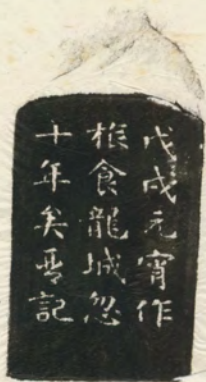 戊戌元宵作
旅食龍城忽
十年矣晋記